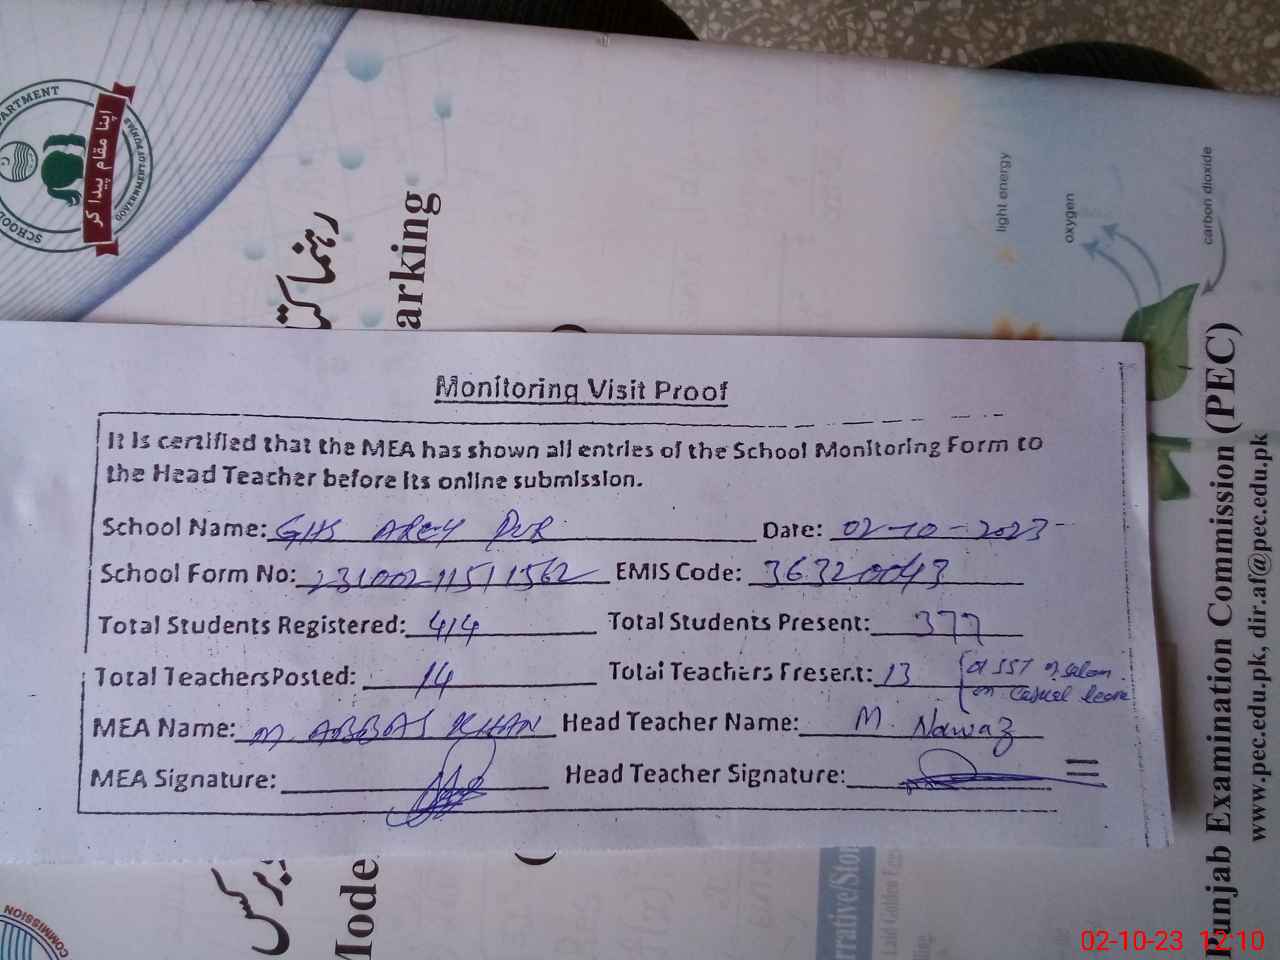 Monitoring Visit Proof
It is certified that the MEA has shown all entries of the School Monitoring Form to
the Head Teacher before its online submission.
School Name: GHS AREY PUR Date: 02-10-2023
School Form No: 23100211511562 EMIS Code: 36320043
Total Students Registered: 414 Total Students Present: 377
Total Teachers Posted: 14 Total Teachers Present: 13 01 SST
on casual leave
MEA Name: M. ABBAS KHAN Head Teacher Name: M. Nawaz
MEA Signature: Head Teacher Signature:
اپنا مقام پیدا کر
رہنما
arking
light energy
oxygen
carbon dioxide
Punjab Examination Commission (PEC)
www.pec.edu.pk, dir.af@pec.edu.pk
Mode
rrative/Stor
Laid Golden Egg
COMMISSION
02-10-23 12:10